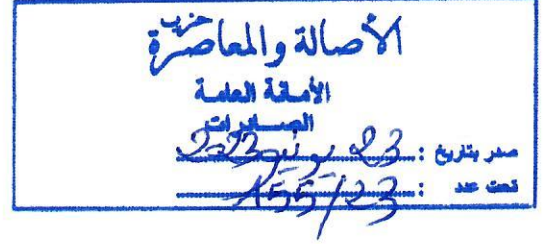 حزب
الأصالة والمعاصرة
الأمانة العامة
الصادرات
صدر بتاريخ : 23 يونيو 2023
تحت عدد : 155/23